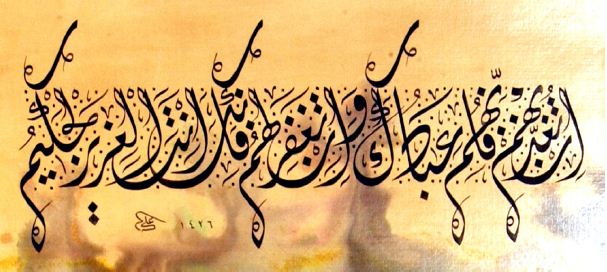 ان تعذبهم فإنهم عبادك وان تغفر لهم فإنك انت العزيز الحكيم
١٤٢٦